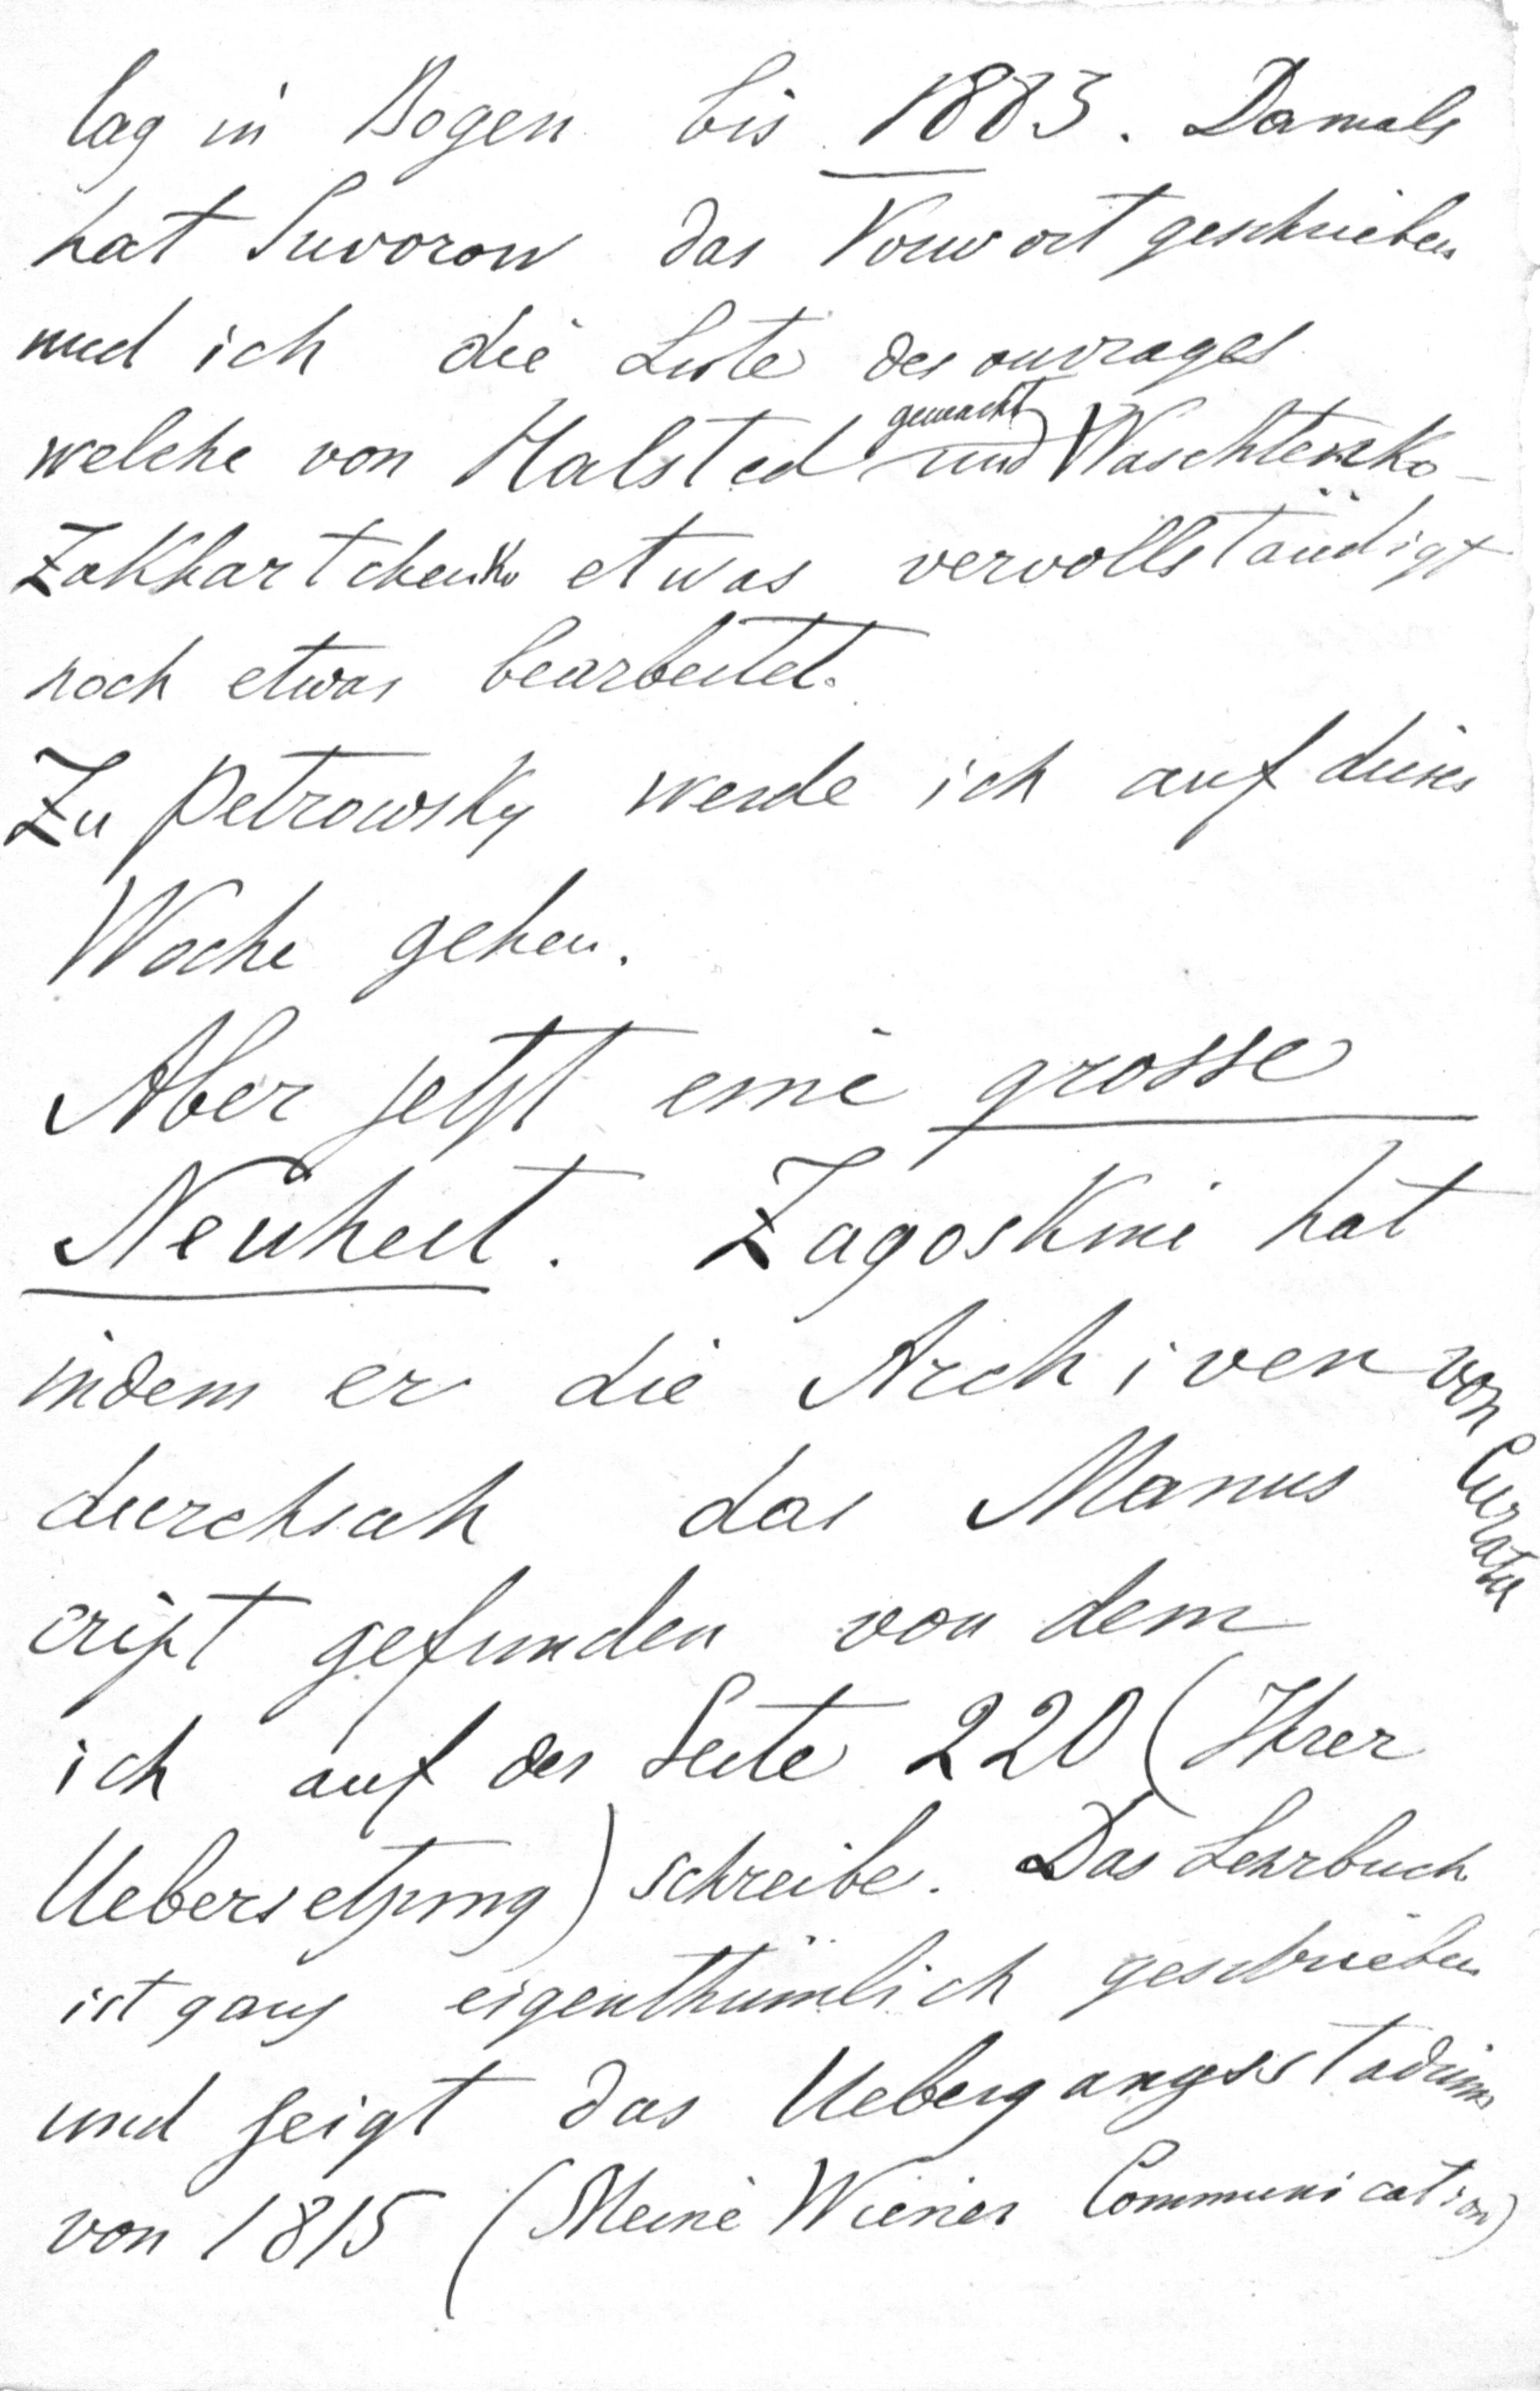 lag in Bogen bis 1883. Damals
hat Suvorow das Vorwort geschrieben
und ich die Liste des ouvrages
welche von Halsted gemacht und Waschtenko-
Zakhartchenko etwas vervollständigt
noch etwas bearbeitet.
Zu Petrowsky werde ich auf dieser
Woche gehen.
Aber jetzt eine grosse
Neuheit. Zagoskine hat
indem er die Archiven von Curator
durchsah das Manus
cript gefunden von dem
ich auf der Seite 220 (Ihrer
Uebersetzung) schreibe. Das Lehrbuch
ist ganz eigenthümlich geschrieben
und zeigt das Uebergangsstadium
von 1815 (Meine Wiener Communication)